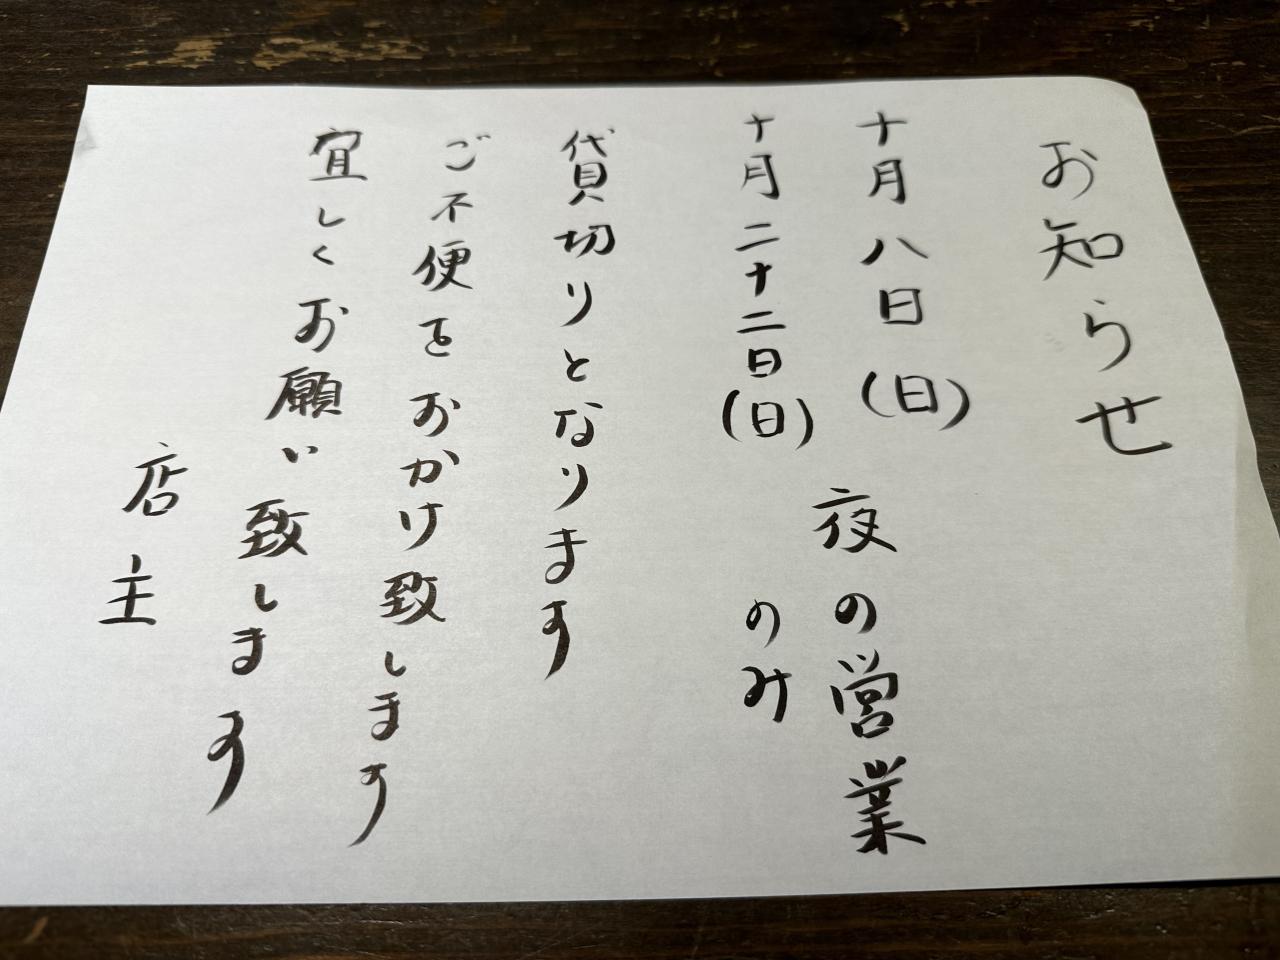 お知らせ
十月八日(日)
十月二十二日(日)
夜の営業
のみ
貸切りとなります
ご不便をおかけ致します
宜しくお願い致します
店主